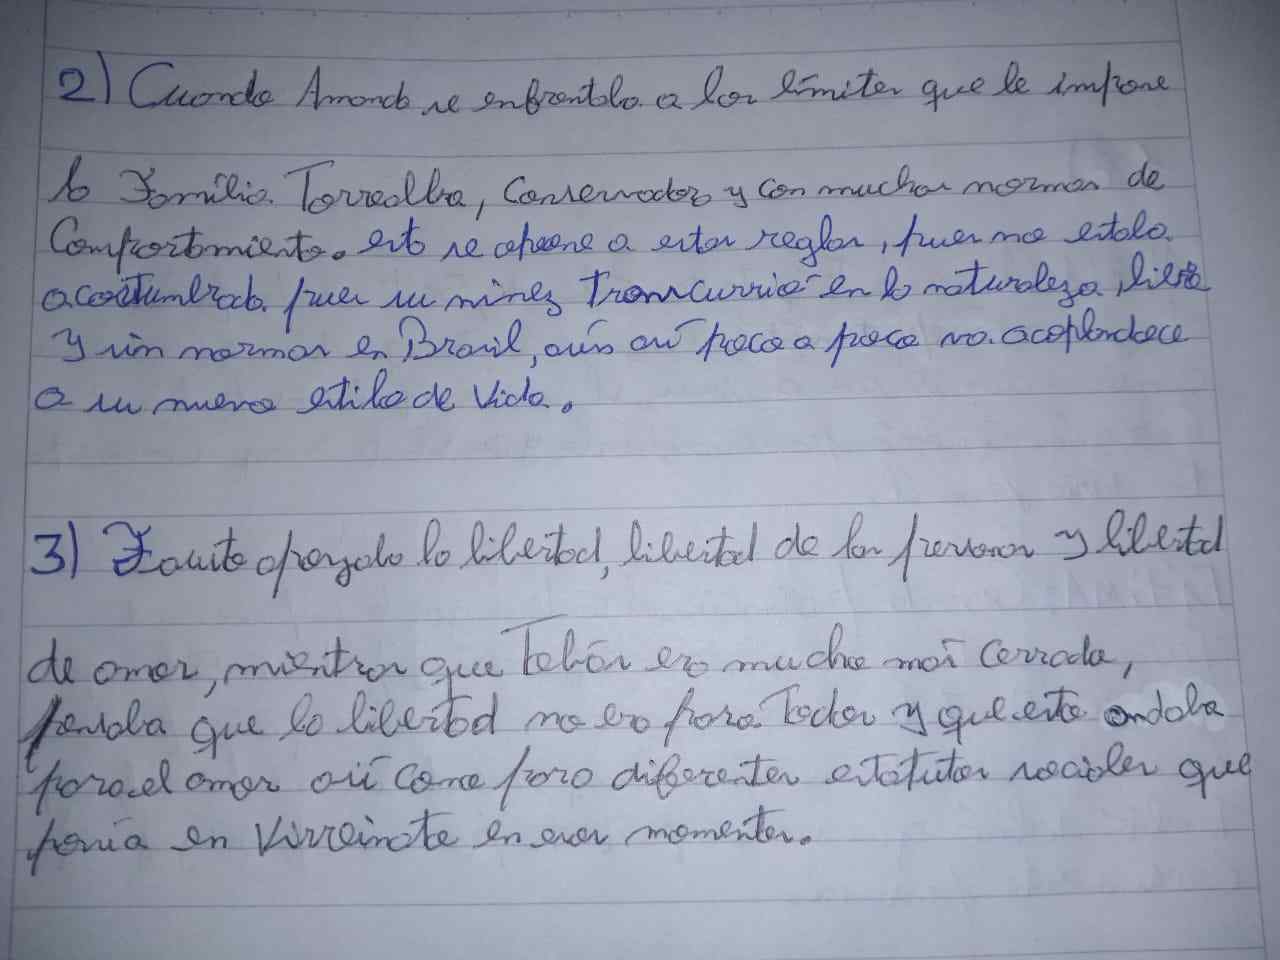 2) Cuando Amanda se enfrentaba a los límites que le impone
la Familia Torrealba, Conservadora y con muchas normas de
Comportamiento. esto se opone a estas reglas, pues no estaba
acostumbrada pues su niñez transcurrió en la naturaleza, libre
y sin normas en Brasil, aún así poco a poco va
a su nuevo estilo de vida.
3) Fausto apoyaba la libertad, libertad de las personas y libertad
de amar, mientras que Tobías era mucho más Cerrado,
pensaba que la libertad no era para Todos y que esto andaba
para el amor así como para diferentes estatutos sociales que
ponía en Virreinato en esos momentos.